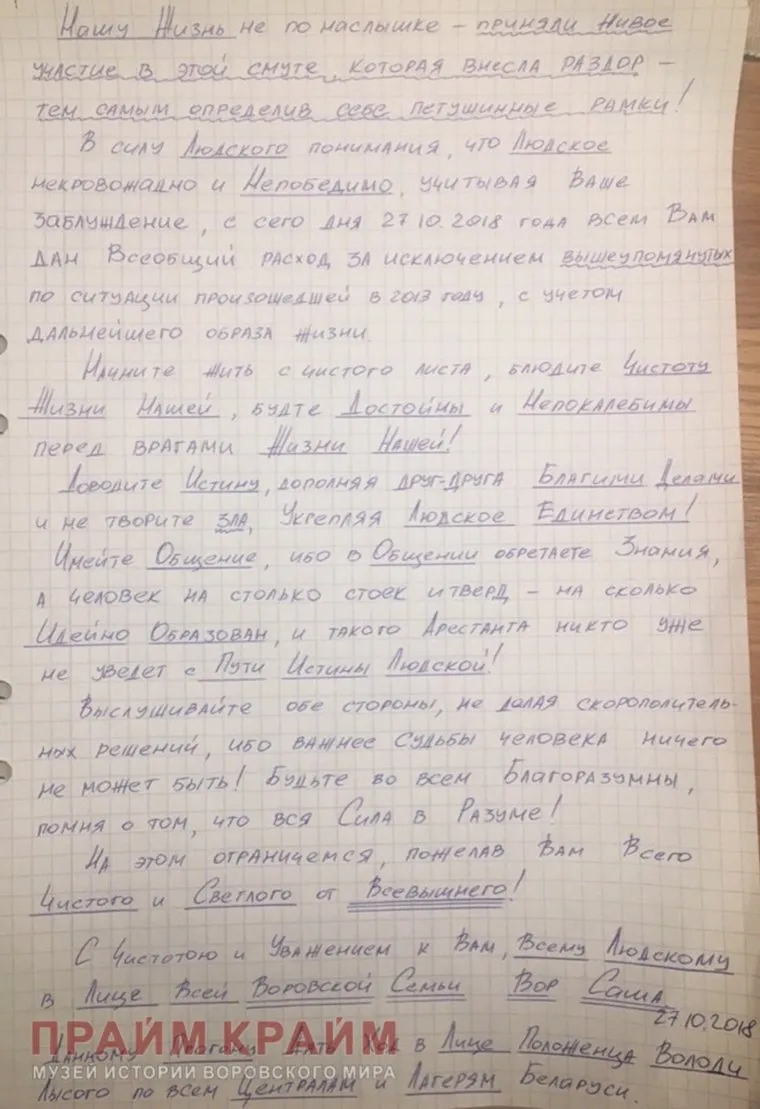 Нашу Жизнь не по наслышке – приняли живое
участие в этой смуте, которая внесла раздор –
тем самым определив себе петушинные рамки!
В силу Людского понимания, что Людское
некровожадно и Непобедимо, учитывая Ваше
заблуждение, с сего дня 27.10.2018 года всем Вам
дан Всеобщий расход за исключением вышеупомянутых
по ситуации произошедшей в 2013 году, с учетом
дальнейшего образа жизни.
Начните жить с чистого листа, блюдите Чистоту
Жизни Нашей, будте Достойны и Непокалебимы
перед врагами Жизни Нашей!
Доводите Истину, дополняя друг-друга Благими Делами
и не творите зла, Укрепляя Людское Единством!
Имейте Общение, ибо в Общении обретаете Знания,
а человек на столько стоек и тверд – на сколько
Идейно Образован, и такого Арестанта никто уже
не уведет с Пути Истины Людской!
Выслушивайте обе стороны, не далая скорополитель-
ных решений, ибо важнее судьбы человека ничего
не может быть! Будьте во всем Благоразумны,
помня о том, что вся Сила в Разуме!
На этом ограничемся, пожелав Вам Всего
Чистого и Светлого от Всевышнего!
С Чистотою и Уважением к Вам, Всему Людскому
в Лице Всей Воровской Семьи Вор Саша
27.10.2018
ПРАЙМ КРАЙМ
Данному Прогону Дать Ход в Лице Положенца Володи
МУЗЕЙ ИСТОРИИ ВОРОВСКОГО МИРА
Лысого по всем Централам и Лагерям Беларуси.